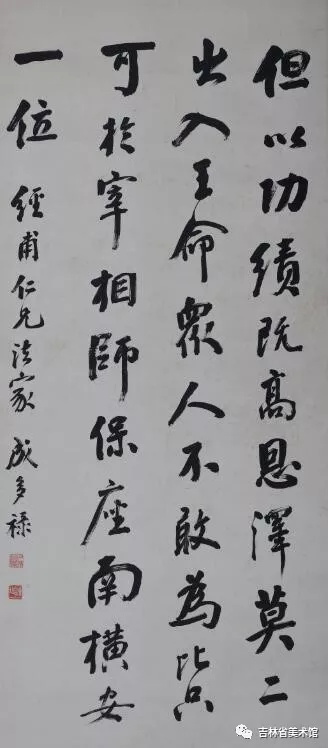 但以功績既高恩澤莫二
出入王命眾人不敢為比只
可於宰相師保座南橫安
一位 經甫仁兄法家 成多祿
吉林省美术馆